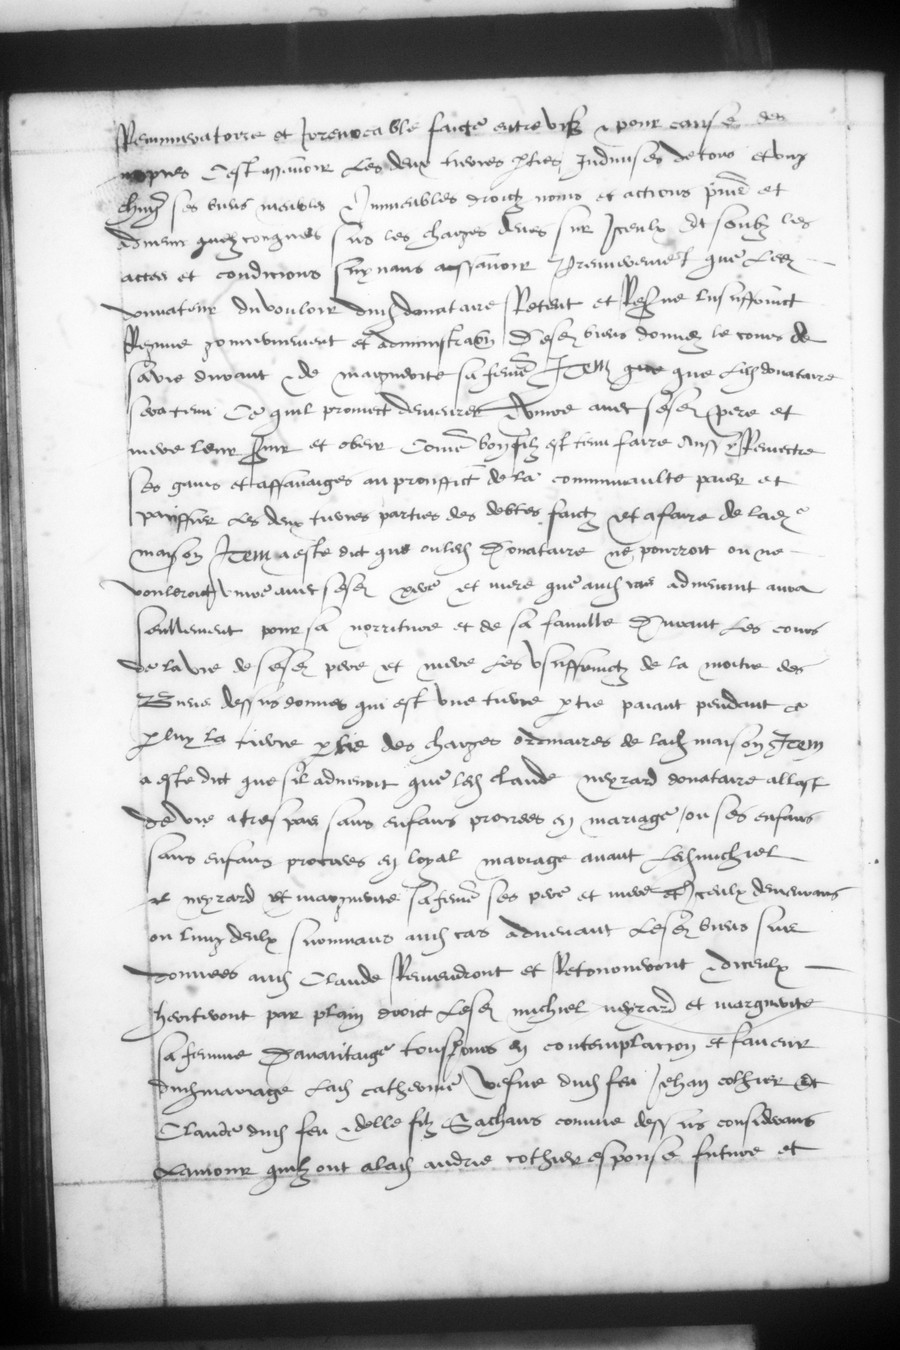 Remuneratoire et Irrevocable faicte entre vifz & pour cause de
nopces C'est assavoir Les deux tierces p̃ties Indivises de tous et ung
chũg ses biens meubles & Immeubles droictz noms et actions p̃ns et
advenir quelzconques sus les charges deues sur Iceulx Et soubz les
actes et condicions suyvans assavoir Premierement que Lesd
donateur du vouloir dud donataire Retient et Reserve lusuffruict
Regime gouvernement et administraon Desd biens donnez le cours de
sa vie durant & de marguerite sa feme Item que que Led donataire
sera tenu Ce quil promect demeurer & vivre avec sesd pere et
mere leur s̃vir et obeir Come bon filz est tenu faire Aussy Remectre
Ses gains et affanaiges au prouffict de la communaulte paier et
paiffier Les deux tierces parties des debtes faictz et a faire de lad
maison Item a este dict que ou led Donataire ne pourroit ou ne
vouldroit vivre avec sesd pere et mere que aud cas advenant aura
seullement pour sa norriture et de sa famille Durant Les cours
de la vie de sesd pere et mere Les usuffruictz de la moitie des
Biens dessus donnes qui est une tierce p̃tie paiant pendant ce
p̃ luy la tierce p̃tie des charges ordinaires de lad maison Item
a este dict que sil advenoit que led Claude neyrard donataire allast
de vie a trespas sans enfans procrees en mariage / ou ses enfans
sans enfans procrees en loyal mariage avant Led michiel
neyrard et marguerite sa feme ses pere et mere et Iceulx demeurans
ou lung deulx survivans aud cas advenant Lesd biens sus
donnees aud Claude Reviendront et Retorneront & diceulx
heriteront par plain droict Lesd michiel neyrard et marguerite
sa femme Davantaige tousjours en contemplacion et faveur
dud mariage Lad catherine vefve dud feu Jehan cothier Et
Claude dud feu & delle filz Sachans comme dessus considerans
Lamour quilz ont a lad andrie cothier espouse future et